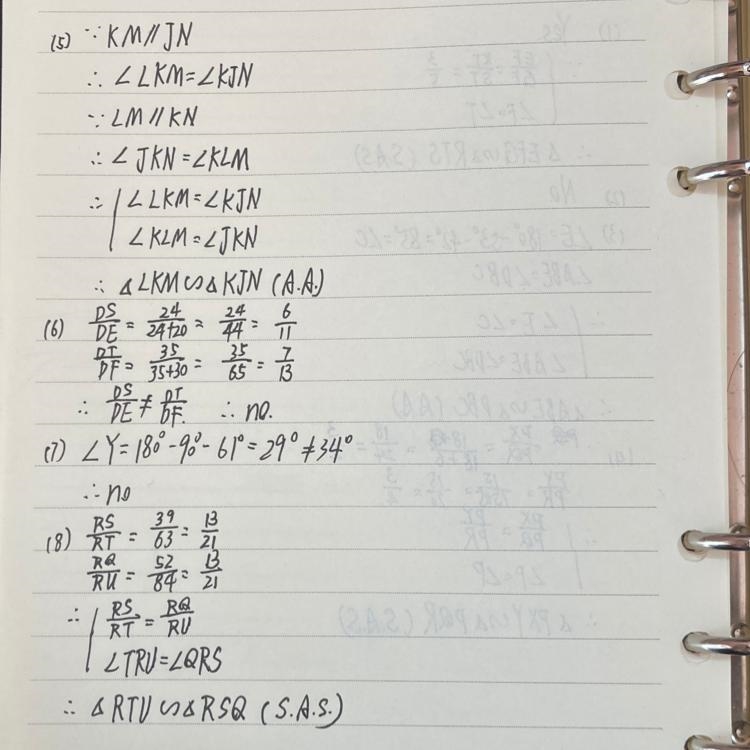 (5) ∵ KM // JN
∴ ∠LKM = ∠KJN
∵ LM // KN
∴ ∠JKN = ∠KLM
∴ { ∠LKM = ∠KJN
∠KLM = ∠JKN
∴ △LKM ∽ △KJN (A.A.)
(6) DS/DE = 24/24+20 = 24/44 = 6/11
DT/DF = 35/35+30 = 35/65 = 7/13
∴ DS/DE ≠ DT/DF. ∴ no.
(7) ∠Y = 180° - 90° - 61° = 29° ≠ 34°
∴ no
(8) RS/RT = 39/63 = 13/21
RQ/RU = 52/84 = 13/21
∴ { RS/RT = RQ/RU
∠TRU = ∠QRS
∴ △RTU ∽ △RSQ (S.A.S.)